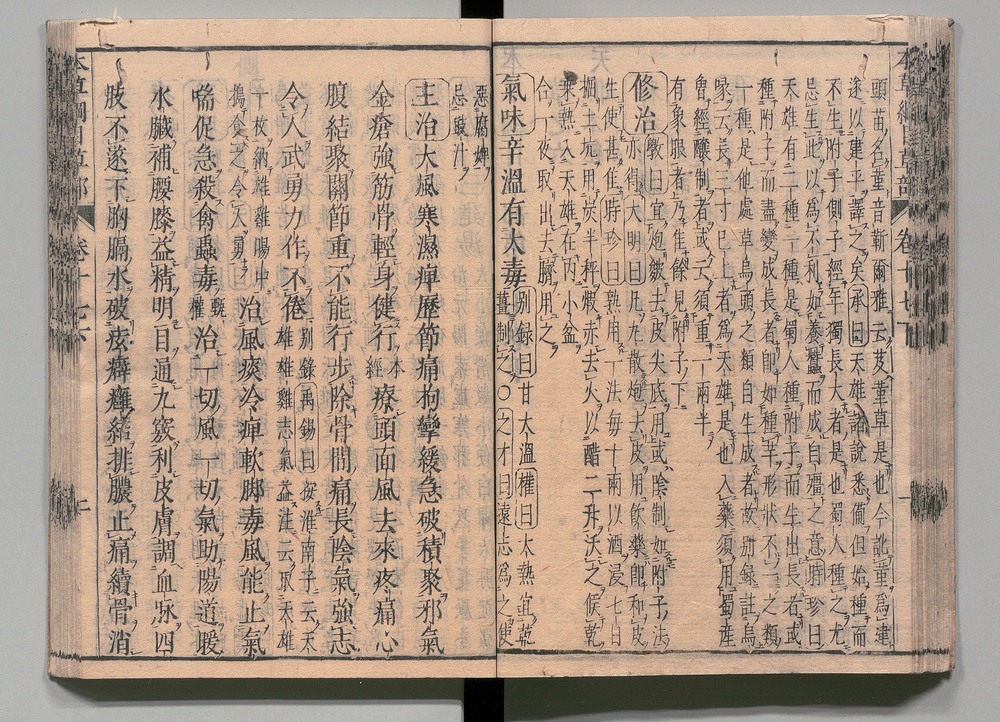 頭苗名菫音靳爾雅云芨菫草是也今訛菫爲建
遂以建平譯之矣承曰天雄諸說悉備但始種而
不生附子側子經年獨長大者是也蜀人種之尤
忌生此以爲不利如養蠶而成白殭之意時珍曰
天雄有二種一種是蜀人種附子而生出長者或
種附子而盡變成長者卽如種芋形狀不一之類
一種是他處草烏頭之類自生成者故別錄註烏
喙云長三寸已上者爲天雄是也入藥須用蜀產
曾經釀制者或云須重一兩半
有象眼者乃佳餘見附子下
修治斅曰宜炮皴去皮尖底用或陰制如附子法
亦得大明曰凡丸散炮去皮用飮藥卽和皮
生使甚佳時珍曰熟用一法每十兩以酒浸七日
掘土坑用炭半秤煅赤去火以醋二升沃之候乾
乘熱入天雄在內小盆
合一夜取出去臍用之
氣味辛溫有大毒別錄曰甘大溫權曰大熱宜乾
薑制之〇之才曰遠志爲之使
惡腐婢
忌豉汁
主治大風寒濕痺歷節痛拘攣緩急破積聚邪氣
金瘡強筋骨輕身健行本經療頭面風去來疼痛心
腹結聚關節重不能行步除骨間痛長陰氣強志
令人武勇力作不倦別錄禹錫曰按淮南子云天
雄雄雞志氣益注云取天雄
一枚納雄雞腸中
搗食之令人勇治風痰冷痺軟脚毒風能止氣
喘促急殺禽蟲毒甄權治一切風一切氣助陽道暖
水臟補腰膝益精明目通九竅利皮膚調血脉四
肢不遂下胸膈水破痃癖癰結排膿止痛續骨消
本草綱目草部
卷十七下